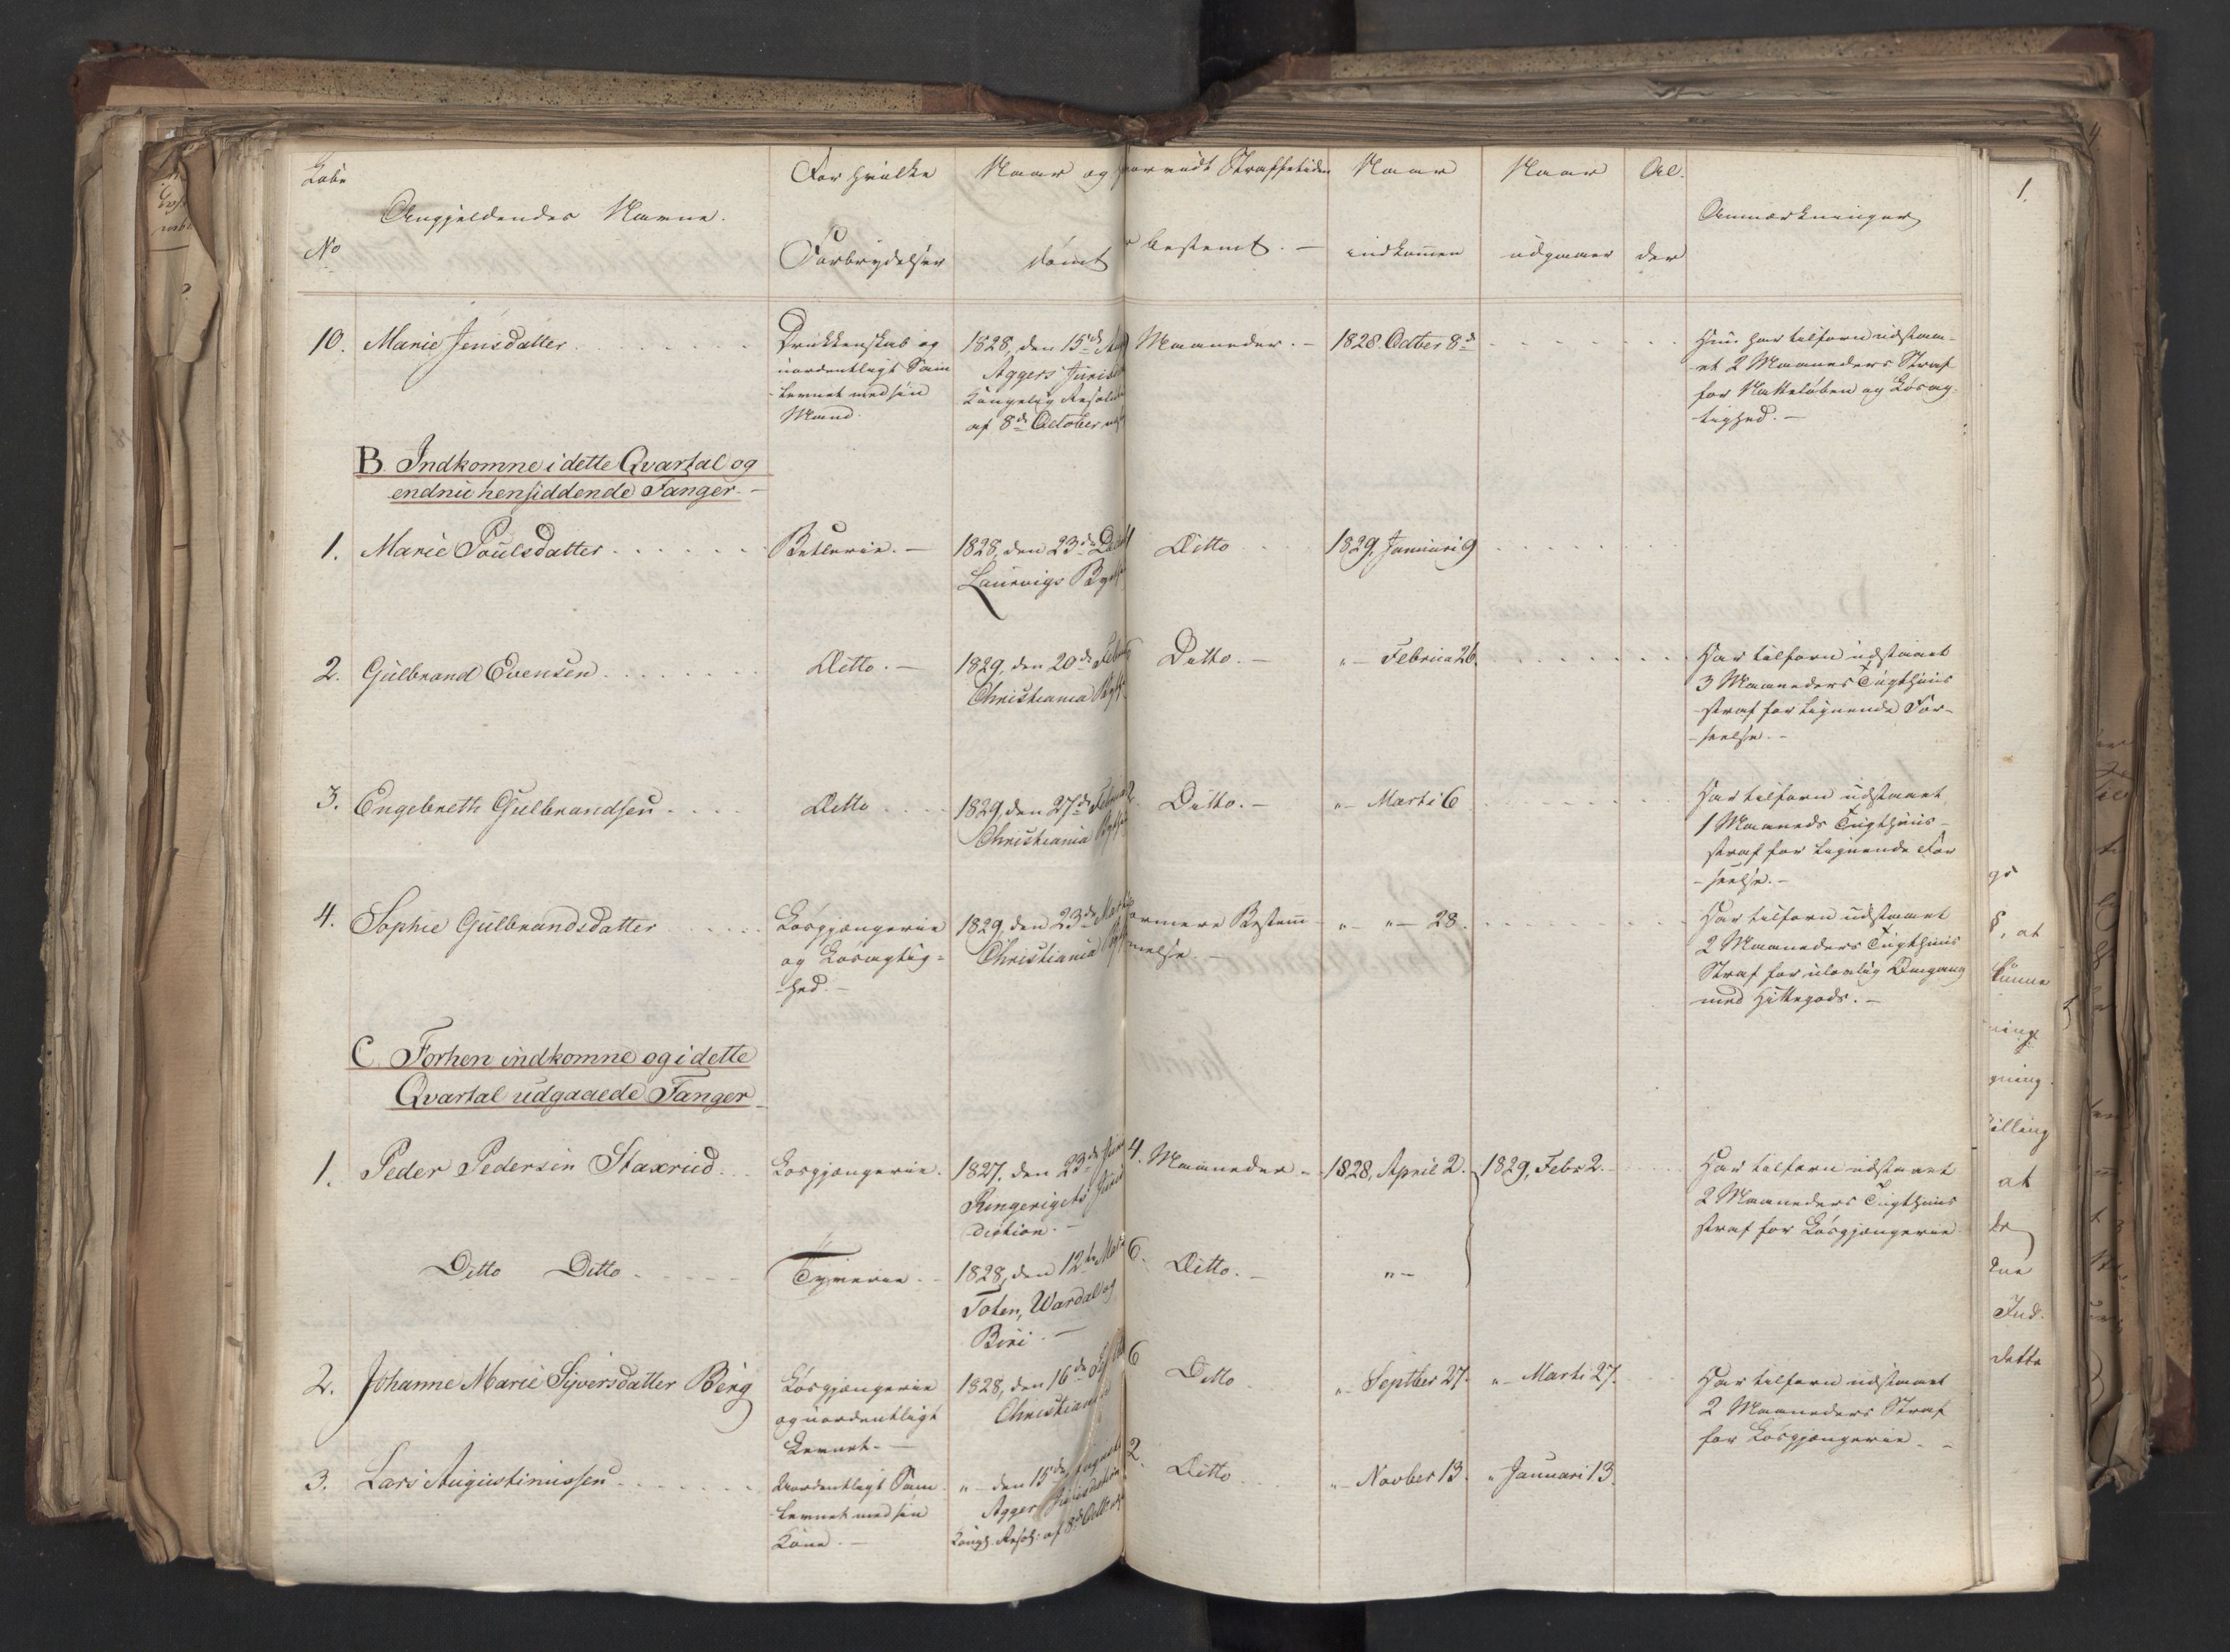 Löbe
No
Angjeldendes Navne.
For hvilke
Forbrydelser
Naar og
dömt
hvorvidt Straffetiden
bestemt. —
Naar
indkommen
Naar
udgaaer
Al.
der
Anmærkninger
1.
10. Marie Jensdatter
Drukkenskab og
uordentligt Sam
-levnet med sin
Mand.
1828, den 15de Aug
Aggers Jurisd
Kongelig Resolut
af 8de October
Maaneder. —
1828. Octber 8de
Hun har tilforn udstaa-
-et 2 Maaneders Straf
for Natteløben og Løsag-
-tighed. —
B. Indkomne i dette Qvartal og
endnu hensiddende Fanger. —
1. Marie Poulsdatter
Betlerie. —
1828, den 23de Dec
Laurvigs Byef
Ditto
1829, Januari 9
2. Gulbrand Evensen
Ditto. —
1829, den 20de Febru
Christiania Byf
Ditto. —
"— Februa 26.
Har tilforn udstaaet
3 Maaneders Tugthuus
straf for lignende For-
-seelse. —
3. Engebreth Gulbrandsen
Ditto
1829, den 27de Februa
Christiania Byef
2. Ditto. —
"— Marti 6
Har tilforn udstaaet
1 Maaneds Tugthuus-
straf for lignende For
-seelse. —
4. Sophie Gulbrandsdatter
Løsgjængerie
og Løsagtig=
-hed. —
1829, den 23de Mar
Christiania Byf
nærmere Bestem-
melse. —
"— "— 28.
Har tilforn udstaaet
2 Maaneders Tugthuus
Straf for ulovlig Omgang
med Hittegods. —
C. Forhen indkomne og i dette
Qvartal udgaaede Fanger —
1. Peder Pedersen Staxrud
Løsgjængerie.
1827, den 23de Jun
Ringerigets Juris
diction. —
4. Maaneder —
1828, April 2.
1829, Febr 2.
Har tilforn udstaaet
2 Maaneders Tugthuus
straf for Løsgjængerie
Ditto Ditto
Tyverie. —
1828, den 12te Mar
Toten, Wardal og
Biri. —
6. Ditto. —
"—
2. Johanne Marie Syversdatter Berg
Løsgjængerie
og uordentligt
Levnet. —
1828, den 16de
Christiania
6 Ditto
"— Septber 27.
"— Marti 27.
Har tilforn udstaaet
2 Maaneders Straf
for Løsgjængerie. —
3. Lars Augustinussen
Uordentligt Sam-
-levnet med sin
Kone. —
"— den 15de August
Aggers Jurisdiction
Kongl. Resol: af 8de Octbr
2. Ditto
"— Novber 13.
" Januari 13.
at
kunne
ning
gning
illing
at
de
Ind-
dette